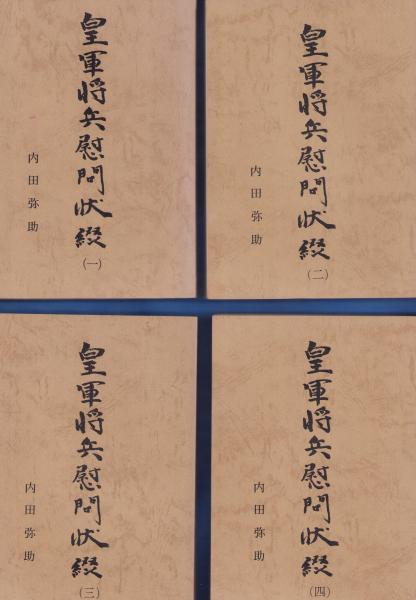 皇軍将兵慰問状綴
(一)
内田弥助
皇軍将兵慰問状綴
(二)
内田弥助
皇軍将兵慰問状綴
(三)
内田弥助
皇軍将兵慰問状綴
(四)
内田弥助